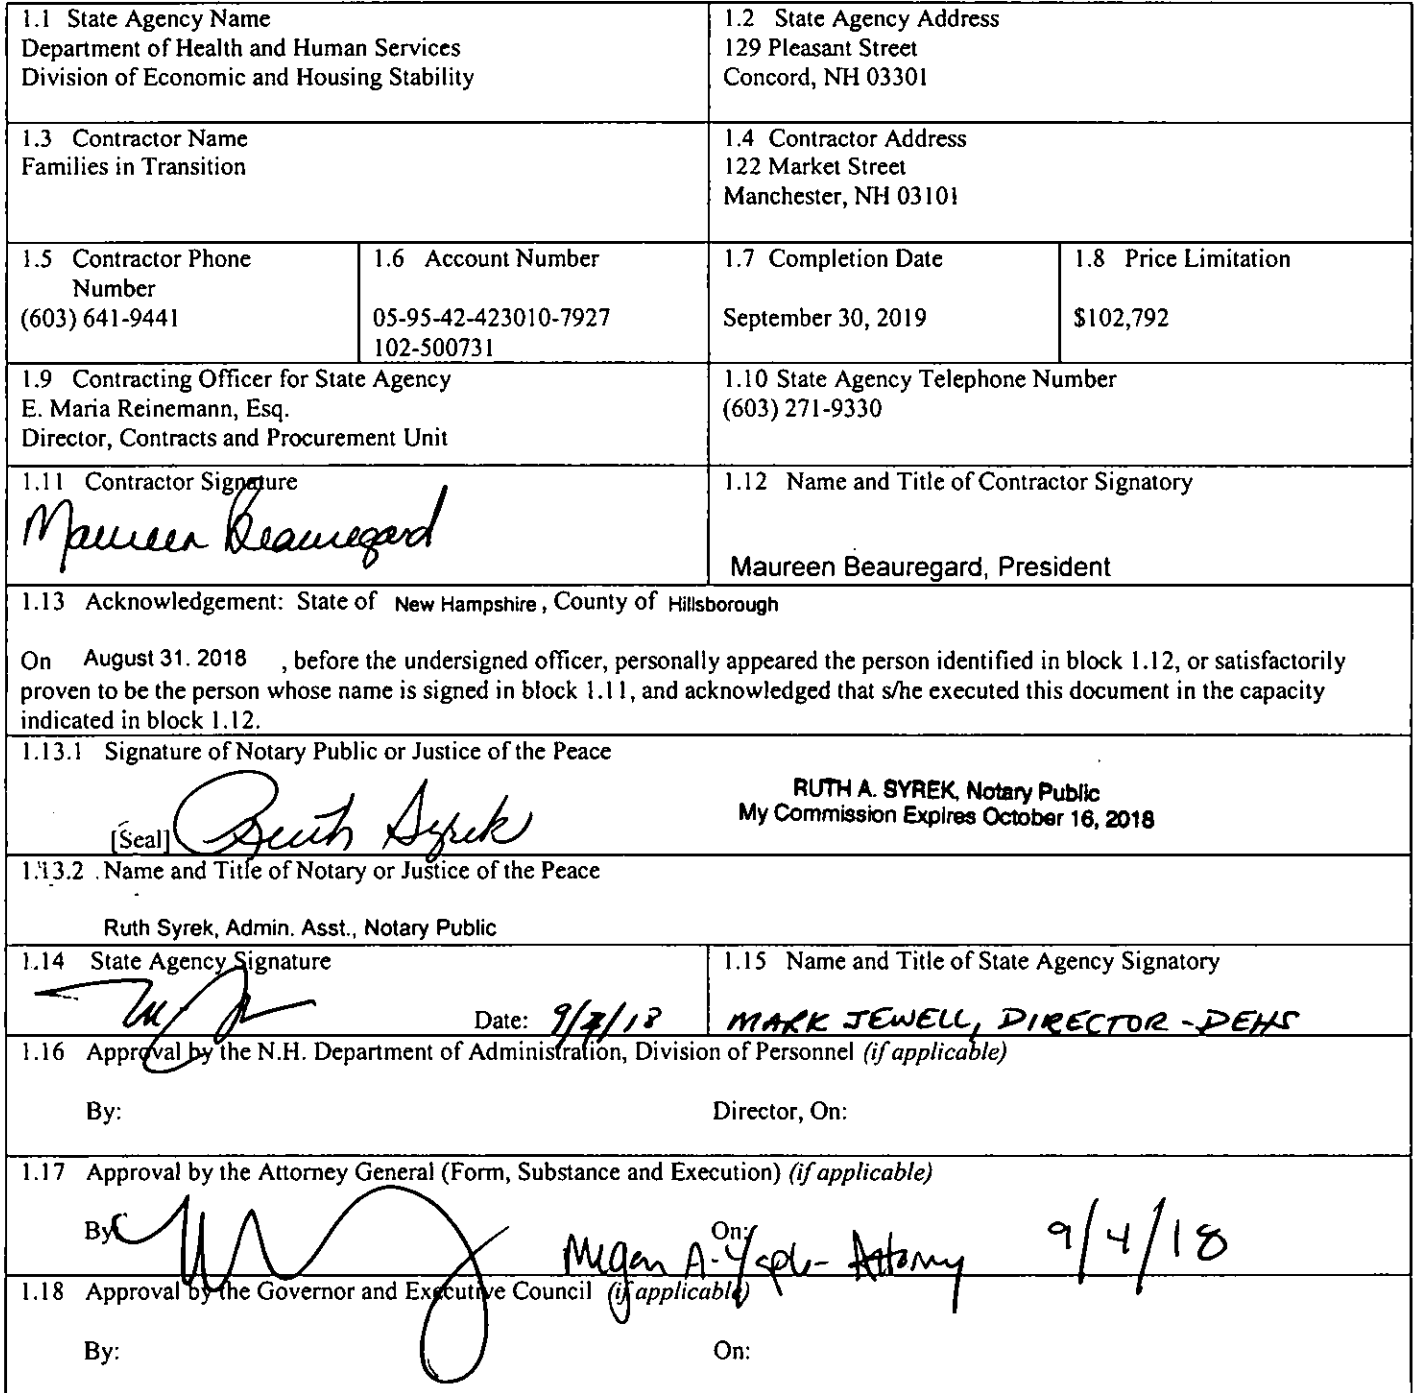 1.1 State Agency Name
Department of Health and Human Services
Division of Economic and Housing Stability
1.2 State Agency Address
129 Pleasant Street
Concord, NH 03301
1.3 Contractor Name
Families in Transition
1.4 Contractor Address
122 Market Street
Manchester, NH 03101
1.5 Contractor Phone
Number
(603) 641-9441
1.6 Account Number
05-95-42-423010-7927
102-500731
1.7 Completion Date
September 30, 2019
1.8 Price Limitation
$102,792
1.9 Contracting Officer for State Agency
E. Maria Reinemann, Esq.
Director, Contracts and Procurement Unit
1.10 State Agency Telephone Number
(603) 271-9330
1.11 Contractor Signature
Maureen Beauregard
1.12 Name and Title of Contractor Signatory
Maureen Beauregard, President
1.13 Acknowledgement: State of New Hampshire, County of Hillsborough
On August 31. 2018 , before the undersigned officer, personally appeared the person identified in block 1.12, or satisfactorily
proven to be the person whose name is signed in block 1.11, and acknowledged that s/he executed this document in the capacity
indicated in block 1.12.
1.13.1 Signature of Notary Public or Justice of the Peace
RUTH A. SYREK, Notary Public
My Commission Expires October 16, 2018
[Seal] Ruth Syrek
1.13.2 Name and Title of Notary or Justice of the Peace
Ruth Syrek, Admin. Asst., Notary Public
1.14 State Agency Signature
Date: 9/ /18
1.15 Name and Title of State Agency Signatory
MARK JEWELL, DIRECTOR - DEHS
1.16 Approval by the N.H. Department of Administration, Division of Personnel (if applicable)
By: Director, On:
1.17 Approval by the Attorney General (Form, Substance and Execution) (if applicable)
By: On: Megan A. Attorney 9/4/18
1.18 Approval by the Governor and Executive Council (if applicable)
By: On: